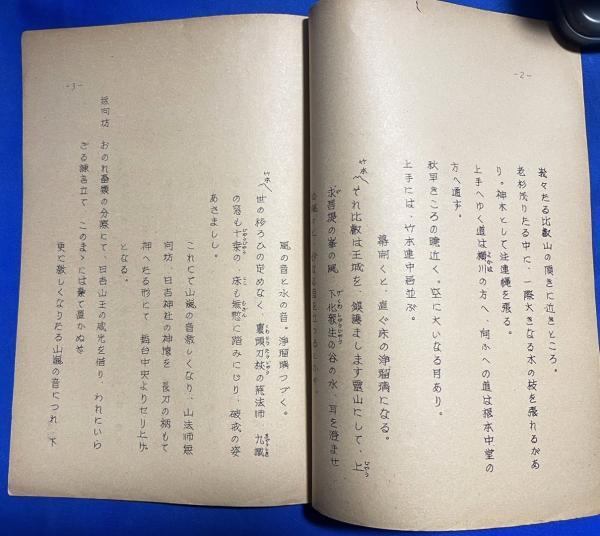 -2-
峩々たる比叡山の頂きに近きところ。
老杉茂りたる中に、一際大きなる木の枝を張れるがあ
り。神木として注連縄を張る。
上手へゆく道は横川の方へ、向ふへの道は根本中堂の
方へ通ず。
秋早きころの暁近く。空に大いなる月あり。
上手には、竹本連中居並ぶ。
幕開くと、直ぐ床の浄瑠璃になる。
竹本〽それ比叡は王城を、鎮護まします霊山にして、上
求菩提の峯の風、下化衆生の谷の水、耳を澄ませ
-3-
風の音と水の音。浄瑠璃つづく。
竹本〽世の移ろひの定めなく、裹頭刀杖の荒法師、九識
の窓も十乗の、床も無慙に踏みにじり、破戒の姿
あさましし。
これにて山嵐の音激しくなり、山法師
向坊、日吉神社の神燈を、長刀の柄もて
押へたる形にて、舞台中央よりセリ上り
となる。
向坊 おのれ畜類の分際にて、日吉山王の威光を借り、われにいら
ざる諫言立て、このまゝには棄て置かぬぞ
更に激しくなりたる山嵐の音につれ、下